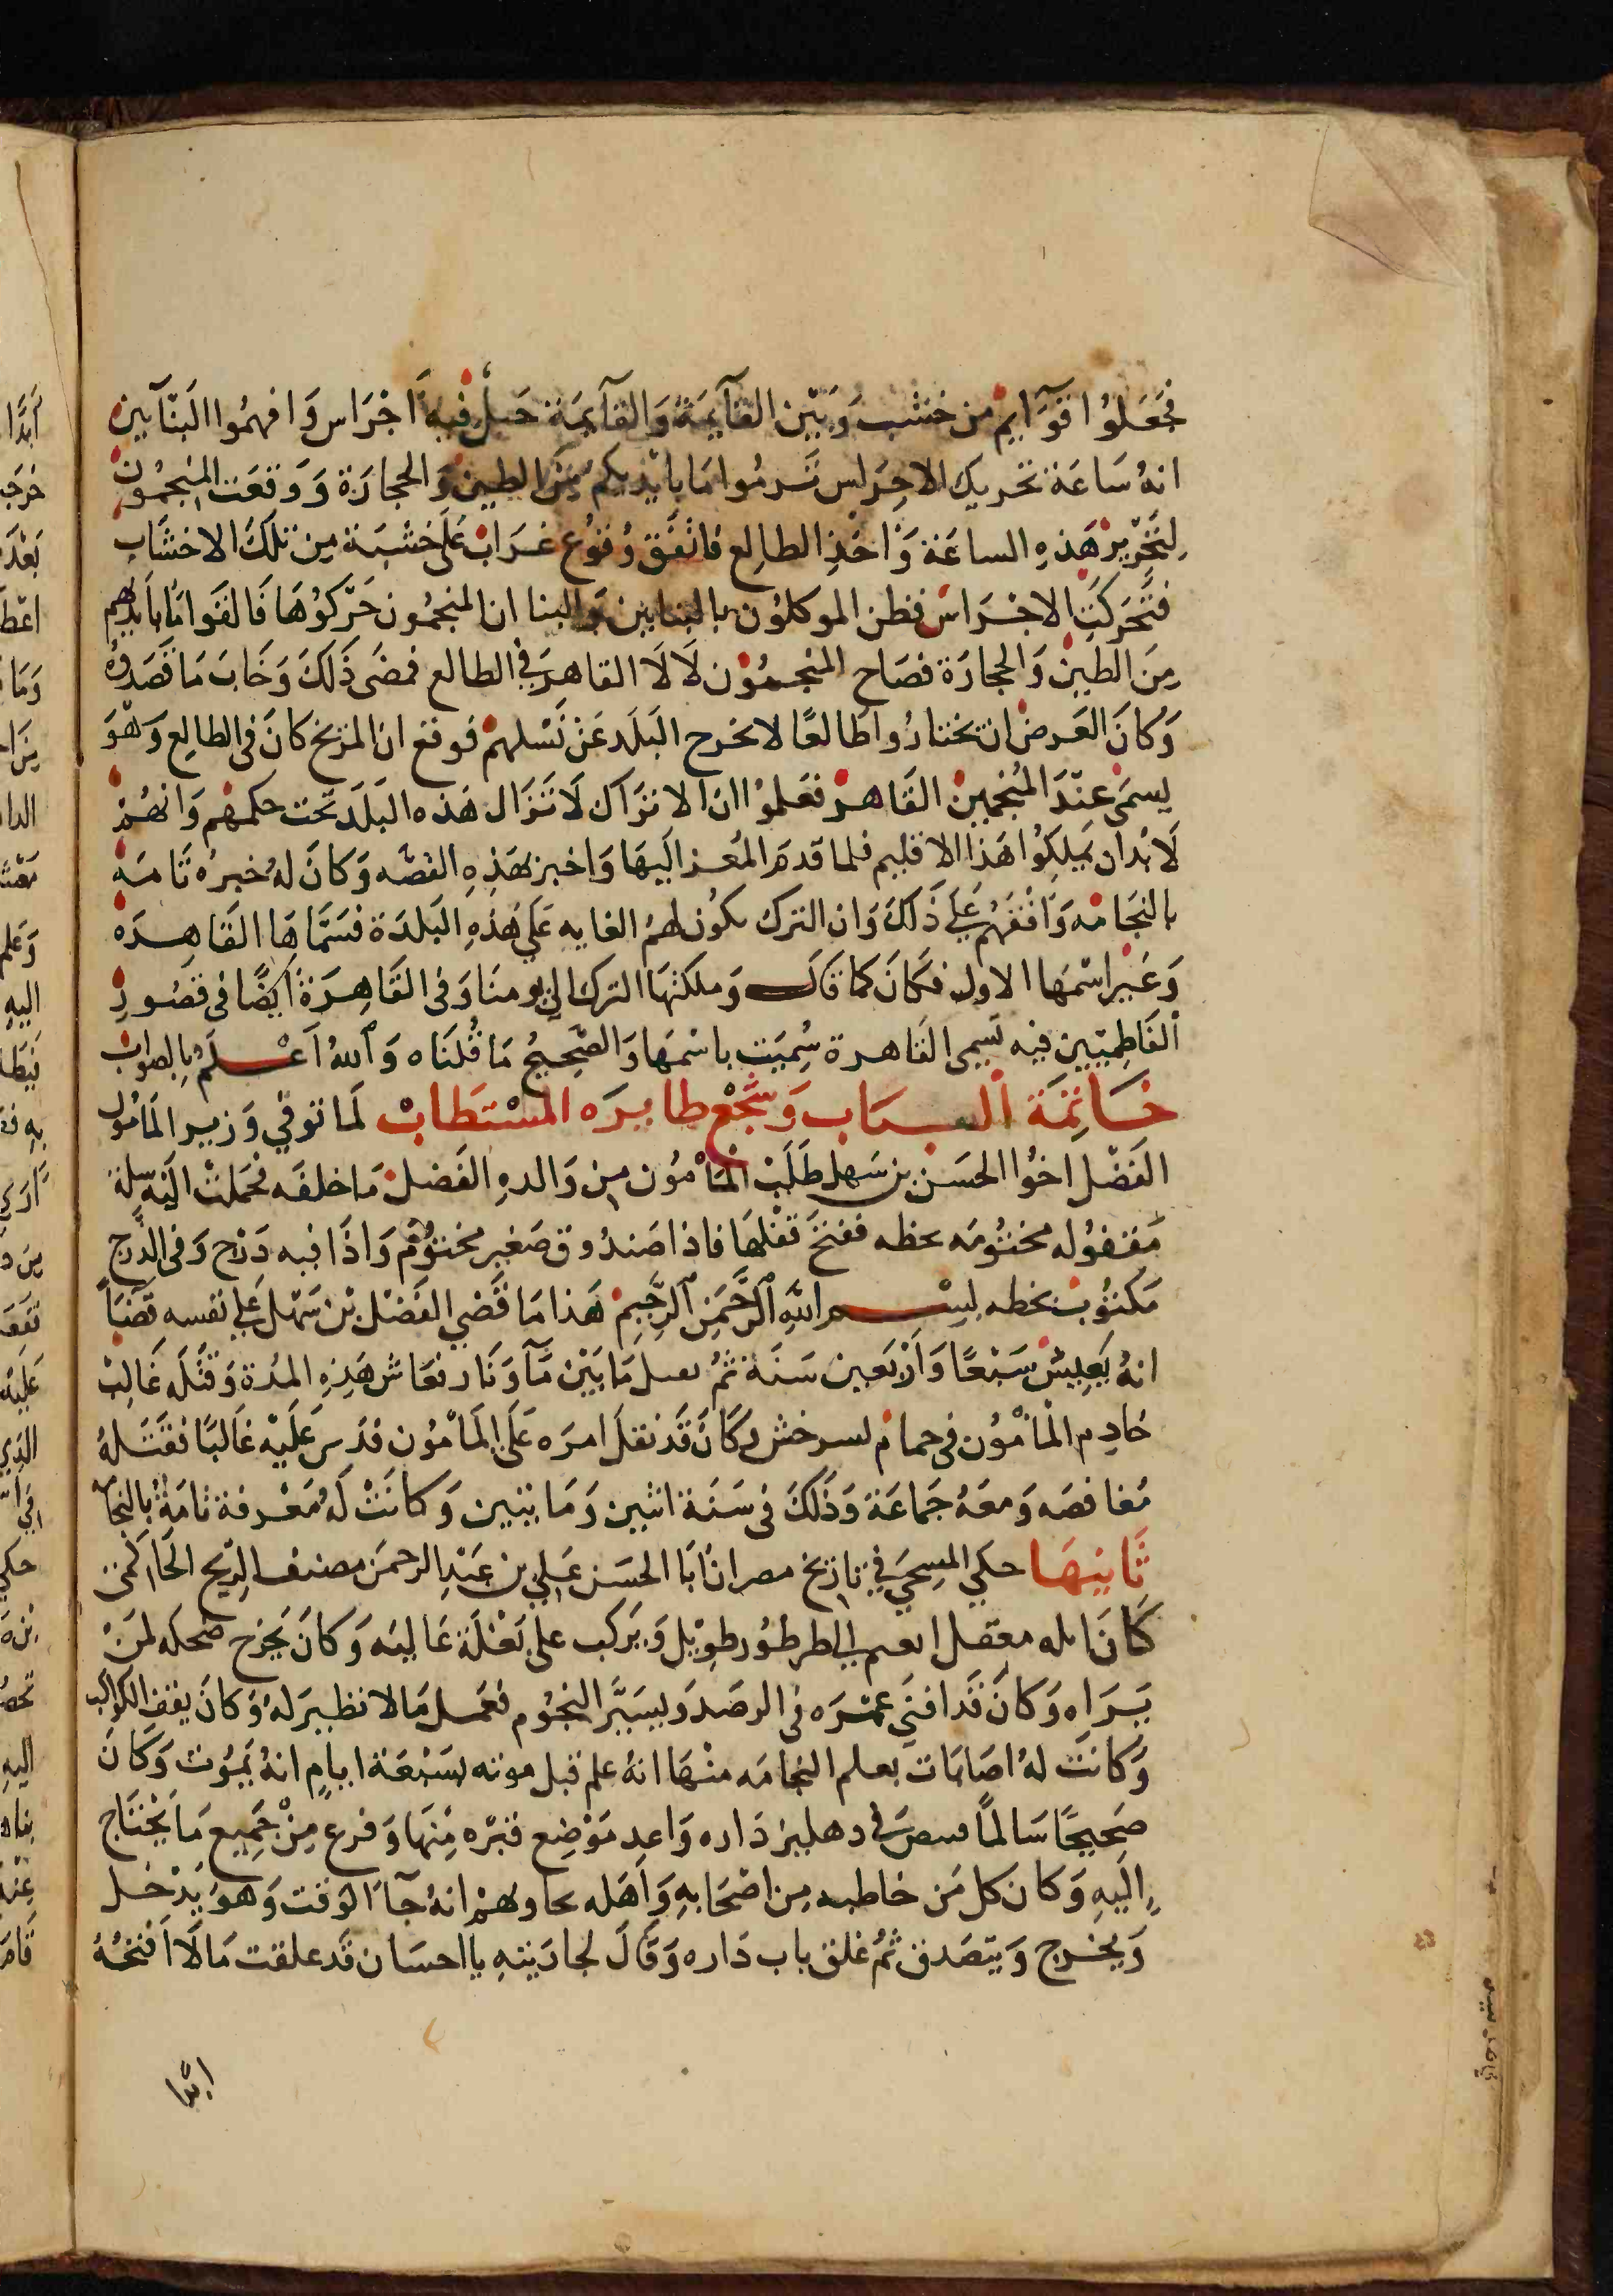 فجعلوا قوآيم من خشب وبين القآيمة والقآيمة حبل فيه اجراس وافهموا البنآيين
انه ساعة تحريك الاجراس ترموا ما بايديكم من الطين والحجارة ووقعت المنجمون
لتحرير هذه الساعة واخذ الطالع فاتفق وقوع غراب على خشبة من تلك الاخشاب
فتحركت الاجراس فظن الموكلون بالبنايين والبنا ان المنجمون حركوها فالقوا ما بايديهم
من الطين والحجارة فصاح المنجمون لا لا القاهر في الطالع فمضى ذلك وخاب ما قصدوه
وكان الغرض ان يختاروا طالعا لا تخرج البلد عن نسلهم فوقع ان المريخ كان في الطالع وهو
يسمى عند المنجمين القاهر فعلموا ان الاتراك لا تزال هذه البلد تحت حكمهم وانهم
لا بد ان يملكوا هذا الاقليم فلما قدم المعز اليها واخبر بهذه القصه وكان له خبره تامه
بالنجامه وافقهم على ذلك وان الترك يكون لهم الغايه على هذه البلدة فسماها القاهره
وغير اسمها الاول فكان كما قال وملكتها الترك الى يومنا وفي القاهرة ايضا في قصور
الفاطميين فيه تسمى القاهرة سميت باسمها والصحيح ما قلناه والله اعلم بالصواب
خاتمة الباب وسجع طايره المستطاب لما توفي وزير المامون
الفضل اخوا الحسن بن سهل طلب المامون من والده الفضل ما خلفه فحملت اليه سلة
مقفوله مختومه بخطه ففتح قفلها فاذا صندوق صغير مختوم واذا فيه درج وفي الدرج
مكتوب بخطه بسم الله الرحمن الرحيم هذا ما قضى الفضل بن سهل على نفسه قضا
انه يعيش سبعا واربعين سنة ثم يقتل ما بين مآ ونار فعاش هذه المدة وقتله غالب
خادم المامون في حمام بسرخس وكان قد نقل امره على المامون فدس عليه غالبا فقتله
مغافصه ومعه جماعة وذلك في سنة اثنين وماينين وكانت له معرفة تامة بالنجامه
ثانيها حكي المسبحي في تاريخ مصر ان ابا الحسن علي بن عبد الرحمن مصنف الزيج الحاكمي
كان ابله مغفل يعمم الطرطور طويل ويركب على بغلة عاليه وكان يخرج ضحكه لمن
يراه وكان قد افنى عمره في الرصد ويسير النجوم فعمل ما لا نظير له وكان يقف للكواكب
وكانت له اصابات بعلم النجامه منها انه علم قبل موته بسبعة ايام انه يموت وكان
صحيحا سالما في دهليز داره واعد موضع قبره منها وفرغ من جميع ما يحتاج
اليه وكان كل من خاطبه من اصحابه واهله يجاوبهم انه جآ الوقت وهو يدخل
ويخرج ويتصدق ثم غلق باب داره وقال لجاريته يا احسان قد علقت ما لا افتحه
ابدا